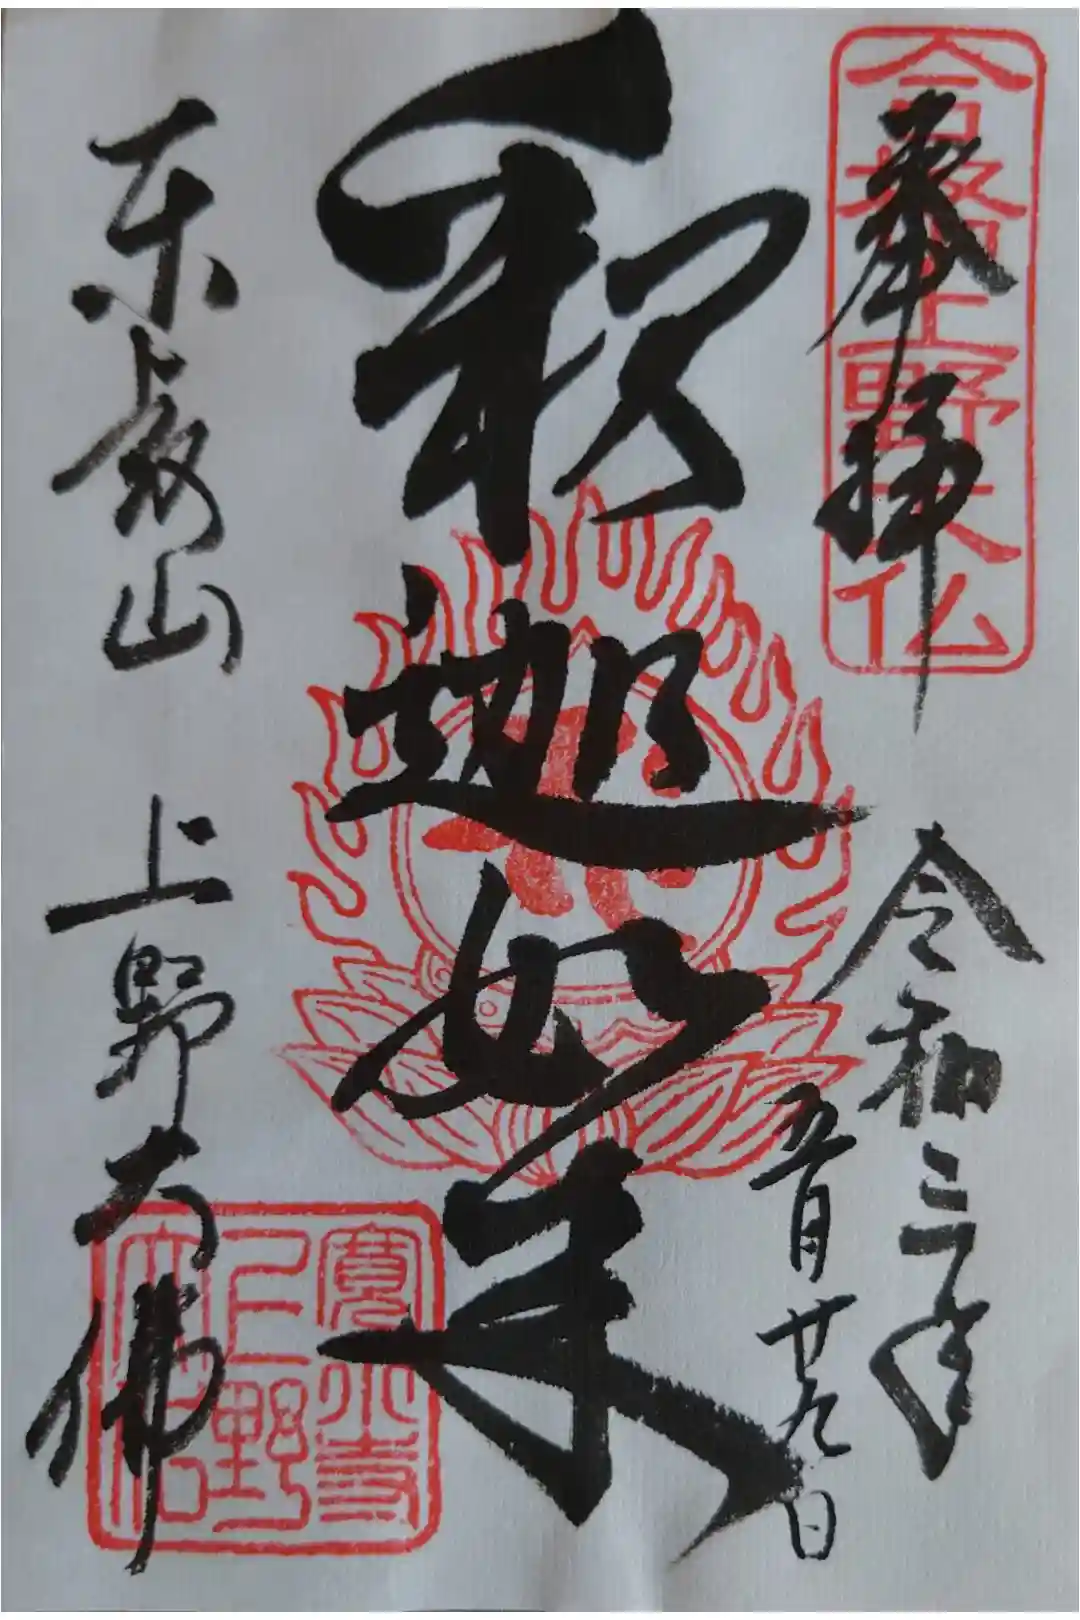 奉拝
合格上野大仏
令和三年
五月廿九日
釈迦如来
東叡山
上野大佛
寛永寺
上野
大佛